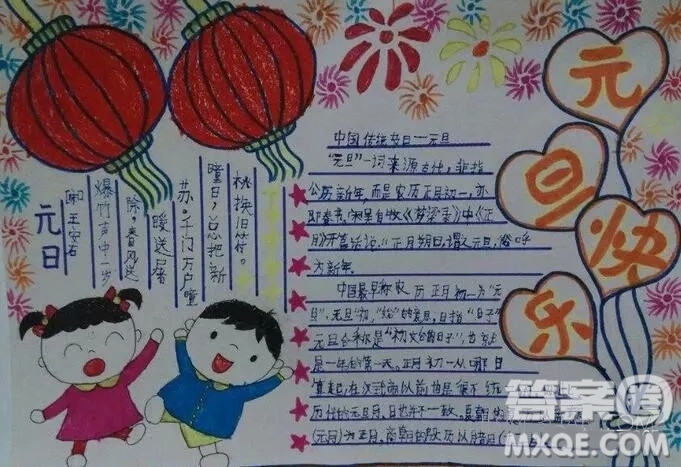 元旦快乐
元日
[宋]王安石
爆竹声中一岁
除,春风送
暖送屠
苏。千门万户瞳
瞳日,总把新
桃换旧符。
中国传统节日—元旦
"元旦"一词来源古代,非指
公历新年,而是农历正月初一,亦
即春素,宋吴自牧《梦梁录》中《正
月》开篇
正月朔日,谓之元旦,俗呼
为新年。
中国最早称农历正月初一为"元
旦",元旦"初"
日指"日子"
元旦合称是"初始的日子",
是一年的第一天。正月初一从哪日
算起,在汉武帝以前也是很不统
历代的元旦月、日也并不一致。夏朝的
(元月)为正月,商朝的殷历以腊月(
答案圈
MXQE.COM